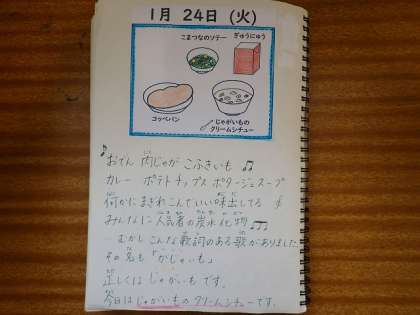 1月 24日 (火)
こまつなのソテー ぎゅうにゅう
コッペパン じゃがいもの
クリームシチュー
おでん 肉じゃが こふきいも
カレー ポテトチップス ポタージュスープ
何かにまぎれこんでいい味出してる
みんなに人気者の炭水化物
むかしこんな歌詞のある歌がありました
その名も「かじゃいも」
正しくはじゃがいもです。
今日はじゃがいものクリームシチューです。